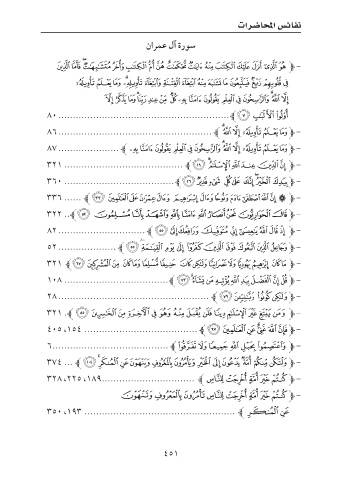 نفائس المحاضرات
سورة آل عمران
- ﴿ هُوَ الَّذِي أَنزَلَ عَلَيْكَ الْكِتَابَ مِنْهُ آيَاتٌ مُّحْكَمَاتٌ هُنَّ أُمُّ الْكِتَابِ وَأُخَرُ مُتَشَابِهَاتٌ فَأَمَّا الَّذِينَ
فِي قُلُوبِهِمْ زَيْغٌ فَيَتَّبِعُونَ مَا تَشَابَهَ مِنْهُ ابْتِغَاءَ الْفِتْنَةِ وَابْتِغَاءَ تَأْوِيلِهِ وَمَا يَعْلَمُ تَأْوِيلَهُ
إِلَّا اللَّهُ وَالرَّاسِخُونَ فِي الْعِلْمِ يَقُولُونَ آمَنَّا بِهِ كُلٌّ مِّنْ عِندِ رَبِّنَا وَمَا يَذَّكَّرُ إِلَّا
أُولُو الْأَلْبَابِ ٧ ﴾ ........ ٨٠
- ﴿ وَمَا يَعْلَمُ تَأْوِيلَهُ إِلَّا اللَّهُ ﴾ ........ ٨٦
- ﴿ وَمَا يَعْلَمُ تَأْوِيلَهُ إِلَّا اللَّهُ وَالرَّاسِخُونَ فِي الْعِلْمِ يَقُولُونَ آمَنَّا بِهِ ﴾ ........ ٨٧
- ﴿ إِنَّ الدِّينَ عِندَ اللَّهِ الْإِسْلَامُ ١٩ ﴾ ........ ٣٢١
- ﴿ بِيَدِكَ الْخَيْرُ إِنَّكَ عَلَى كُلِّ شَيْءٍ قَدِيرٌ ٢٦ ﴾ ........ ٣٦٠
- ﴿ ۞ إِنَّ اللَّهَ اصْطَفَى آدَمَ وَنُوحًا وَآلَ إِبْرَاهِيمَ وَآلَ عِمْرَانَ عَلَى الْعَالَمِينَ ٣٣ ﴾ ...... ٣٣٦
- ﴿ قَالَ الْحَوَارِيُّونَ نَحْنُ أَنصَارُ اللَّهِ آمَنَّا بِاللَّهِ وَاشْهَدْ بِأَنَّا مُسْلِمُونَ ٥٢ ﴾ .. ٣٢٢
- ﴿ إِذْ قَالَ اللَّهُ يَا عِيسَى إِنِّي مُتَوَفِّيكَ وَرَافِعُكَ إِلَيَّ ٥٥ ﴾ ........ ٨٢
- ﴿ وَجَاعِلُ الَّذِينَ اتَّبَعُوكَ فَوْقَ الَّذِينَ كَفَرُوا إِلَى يَوْمِ الْقِيَامَةِ ٥٥ ﴾ ........ ٥٢
- ﴿ مَا كَانَ إِبْرَاهِيمُ يَهُودِيًّا وَلَا نَصْرَانِيًّا وَلَكِن كَانَ حَنِيفًا مُّسْلِمًا وَمَا كَانَ مِنَ الْمُشْرِكِينَ ٦٧ ﴾ ٣٢١
- ﴿ قُلْ إِنَّ الْفَضْلَ بِيَدِ اللَّهِ يُؤْتِيهِ مَن يَشَاءُ ٧٣ ﴾ ........ ١٠٨
- ﴿ وَلَكِن كُونُوا رَبَّانِيِّينَ ٧٩ ﴾ ........ ٢٨
- ﴿ وَمَن يَبْتَغِ غَيْرَ الْإِسْلَامِ دِينًا فَلَن يُقْبَلَ مِنْهُ وَهُوَ فِي الْآخِرَةِ مِنَ الْخَاسِرِينَ ٨٥ ﴾ . ٣٢١
- ﴿ فَإِنَّ اللَّهَ غَنِيٌّ عَنِ الْعَالَمِينَ ٩٧ ﴾ ........ ١٥٤، ٤٠٥
- ﴿ وَاعْتَصِمُوا بِحَبْلِ اللَّهِ جَمِيعًا وَلَا تَفَرَّقُوا ﴾ ........ ٦
- ﴿ وَلْتَكُن مِّنكُمْ أُمَّةٌ يَدْعُونَ إِلَى الْخَيْرِ وَيَأْمُرُونَ بِالْمَعْرُوفِ وَيَنْهَوْنَ عَنِ الْمُنكَرِ ١٠٤ ﴾ ... ٣٧٤
- ﴿ كُنتُمْ خَيْرَ أُمَّةٍ أُخْرِجَتْ لِلنَّاسِ ﴾ ........ ١٨٩، ٢٢٥، ٣٢٨
- ﴿ كُنتُمْ خَيْرَ أُمَّةٍ أُخْرِجَتْ لِلنَّاسِ تَأْمُرُونَ بِالْمَعْرُوفِ وَتَنْهَوْنَ
عَنِ الْمُنكَرِ ﴾ ........ ١٩٣، ٣٥٠
٤٥١